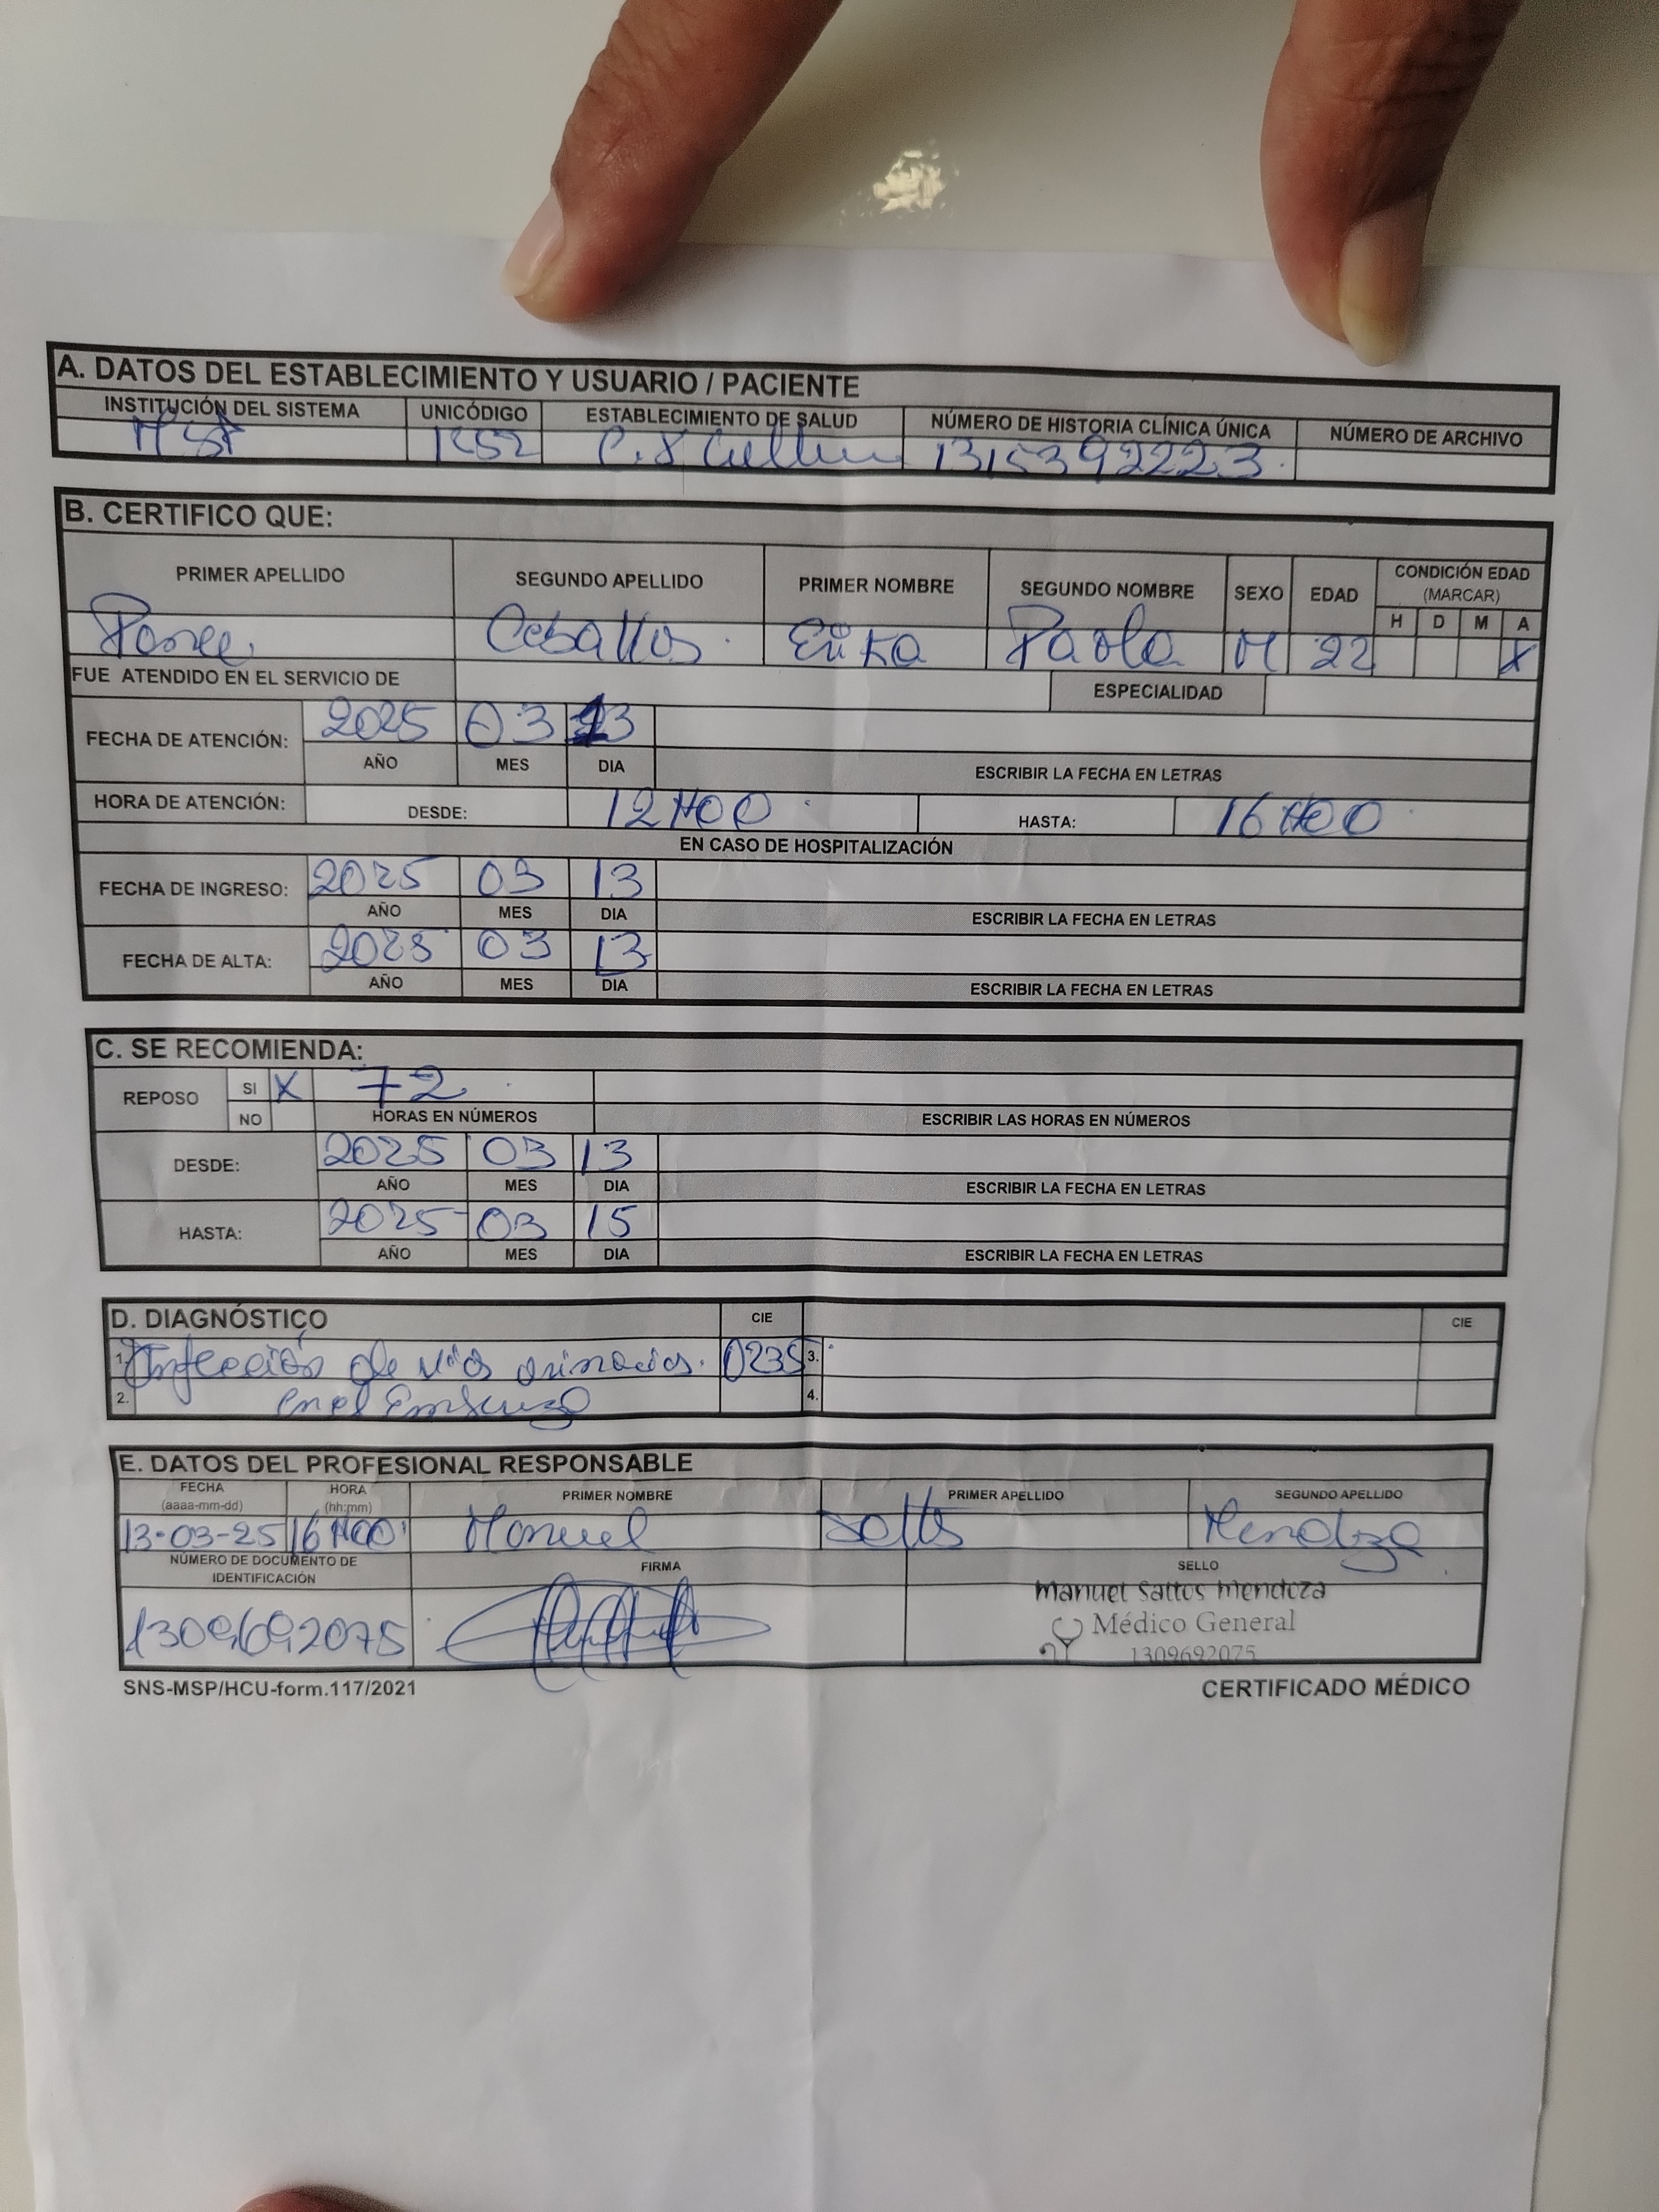 A. DATOS DEL ESTABLECIMIENTO Y USUARIO / PACIENTE
INSTITUCIÓN DEL SISTEMA UNICÓDIGO ESTABLECIMIENTO DE SALUD NÚMERO DE HISTORIA CLÍNICA ÚNICA NÚMERO DE ARCHIVO
1315392223
B. CERTIFICO QUE:
PRIMER APELLIDO SEGUNDO APELLIDO PRIMER NOMBRE SEGUNDO NOMBRE SEXO EDAD CONDICIÓN EDAD
(MARCAR)
H D M A
Ponce Ceballos Erika Paola M 22 X
FUE ATENDIDO EN EL SERVICIO DE ESPECIALIDAD
FECHA DE ATENCIÓN: 2025 03 13
AÑO MES DIA ESCRIBIR LA FECHA EN LETRAS
HORA DE ATENCIÓN: DESDE: 12H00 HASTA: 16H00
EN CASO DE HOSPITALIZACIÓN
FECHA DE INGRESO: 2025 03 13
AÑO MES DIA ESCRIBIR LA FECHA EN LETRAS
FECHA DE ALTA: 2025 03 13
AÑO MES DIA ESCRIBIR LA FECHA EN LETRAS
C. SE RECOMIENDA:
REPOSO SI X 72
NO HORAS EN NÚMEROS ESCRIBIR LAS HORAS EN NÚMEROS
DESDE: 2025 03 13
AÑO MES DIA ESCRIBIR LA FECHA EN LETRAS
HASTA: 2025 03 15
AÑO MES DIA ESCRIBIR LA FECHA EN LETRAS
D. DIAGNÓSTICO CIE CIE
1. Infección de vías urinarias. 0235 3.
2. en el Embarazo 4.
E. DATOS DEL PROFESIONAL RESPONSABLE
FECHA HORA PRIMER NOMBRE PRIMER APELLIDO SEGUNDO APELLIDO
(aaaa-mm-dd) (hh:mm)
13-03-25 16H00 Manuel Saltos Mendoza
NÚMERO DE DOCUMENTO DE FIRMA SELLO
IDENTIFICACIÓN
1309692075
Manuel Saltos Mendoza
Médico General
1309692075
SNS-MSP/HCU-form.117/2021 CERTIFICADO MÉDICO